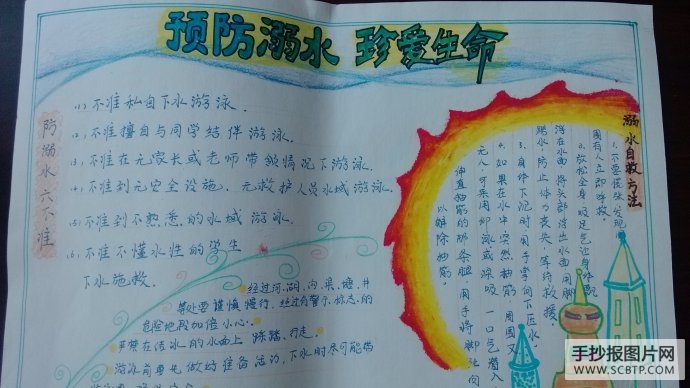 预防溺水 珍爱生命
防溺水六不准
(1)不准私自下水游泳.
(2)不准擅自与同学结伴游泳.
(3)不准在无家长或老师带领情况下游泳.
(4)不准到无安全设施、无救护人员水域游泳.
(5)不准到不熟悉的水域游泳.
(6)不准不懂水性的学生
下水施救.
经过河、湖、沟、渠、塘、井
等处要谨慎慢行,经过有警示标志的
危险地段加倍小心.
严禁在结冰的水面上踩踏、行走.
游泳前要先做好准备活动,下水时尽可能
溺水自救方法
1.不要慌张,发现
周围有人立即呼救。
2.放松全身,
浮在水面,将头部浮出水面,用脚
踢水,防止体力丧失,等待救援。
3.身体下沉时,用手掌向下压水
4.如果在水中突然抽筋,
一口气潜入
伸直抽筋的那条腿,用手将脚趾向
以解除抽筋。
手抄报图片网
WWW.SCBTP.COM